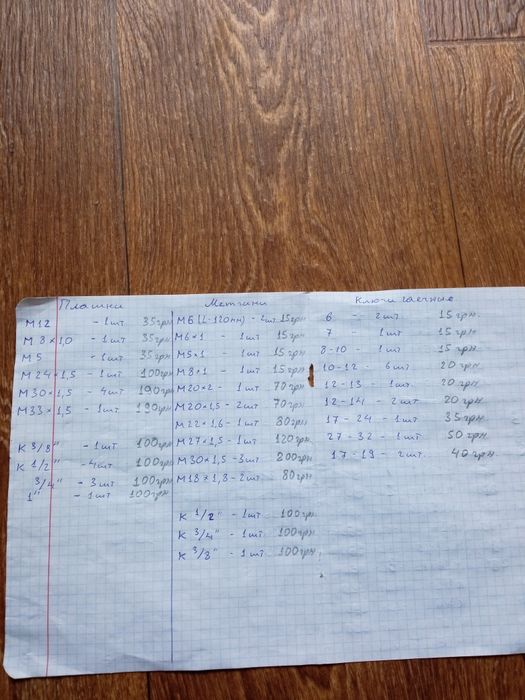 Плашки
М12 - 1шт 35грн
М 8×1,0 - 1шт 35грн
М5 - 1шт 35грн
М24×1,5 - 1шт 100грн
М30×1,5 - 4шт 190грн
М33×1,5 - 1шт 190грн
К 3/8" - 1шт 100грн
К 1/2" - 4шт 100грн
3/4" - 3шт 100грн
1" - 1шт 100грн
Метчики
М6 (L-120мм) - 2шт 15грн
М6×1 - 1шт 15грн
М5×1 - 1шт 15грн
М8×1 - 1шт 15грн
М20×2 - 1шт 70грн
М20×1,5 - 2шт 70грн
М22×1,6 - 1шт 80грн
М27×1,5 - 1шт 120грн
М30×1,5 - 3шт 200грн
М18×1,8 - 2шт 80грн
К 1/2" - 1шт 100грн
К 3/4" - 1шт 100грн
К 3/8" - 1шт 100грн
Ключи гаечные
6 - 2шт 15грн
7 - 1шт 15грн
8-10 - 1шт 15грн
10-12 - 6шт 20грн
12-13 - 1шт 20грн
12-14 - 2шт 20грн
17-24 - 1шт 35грн
27-32 - 1шт 50грн
17-19 - 2шт 40грн